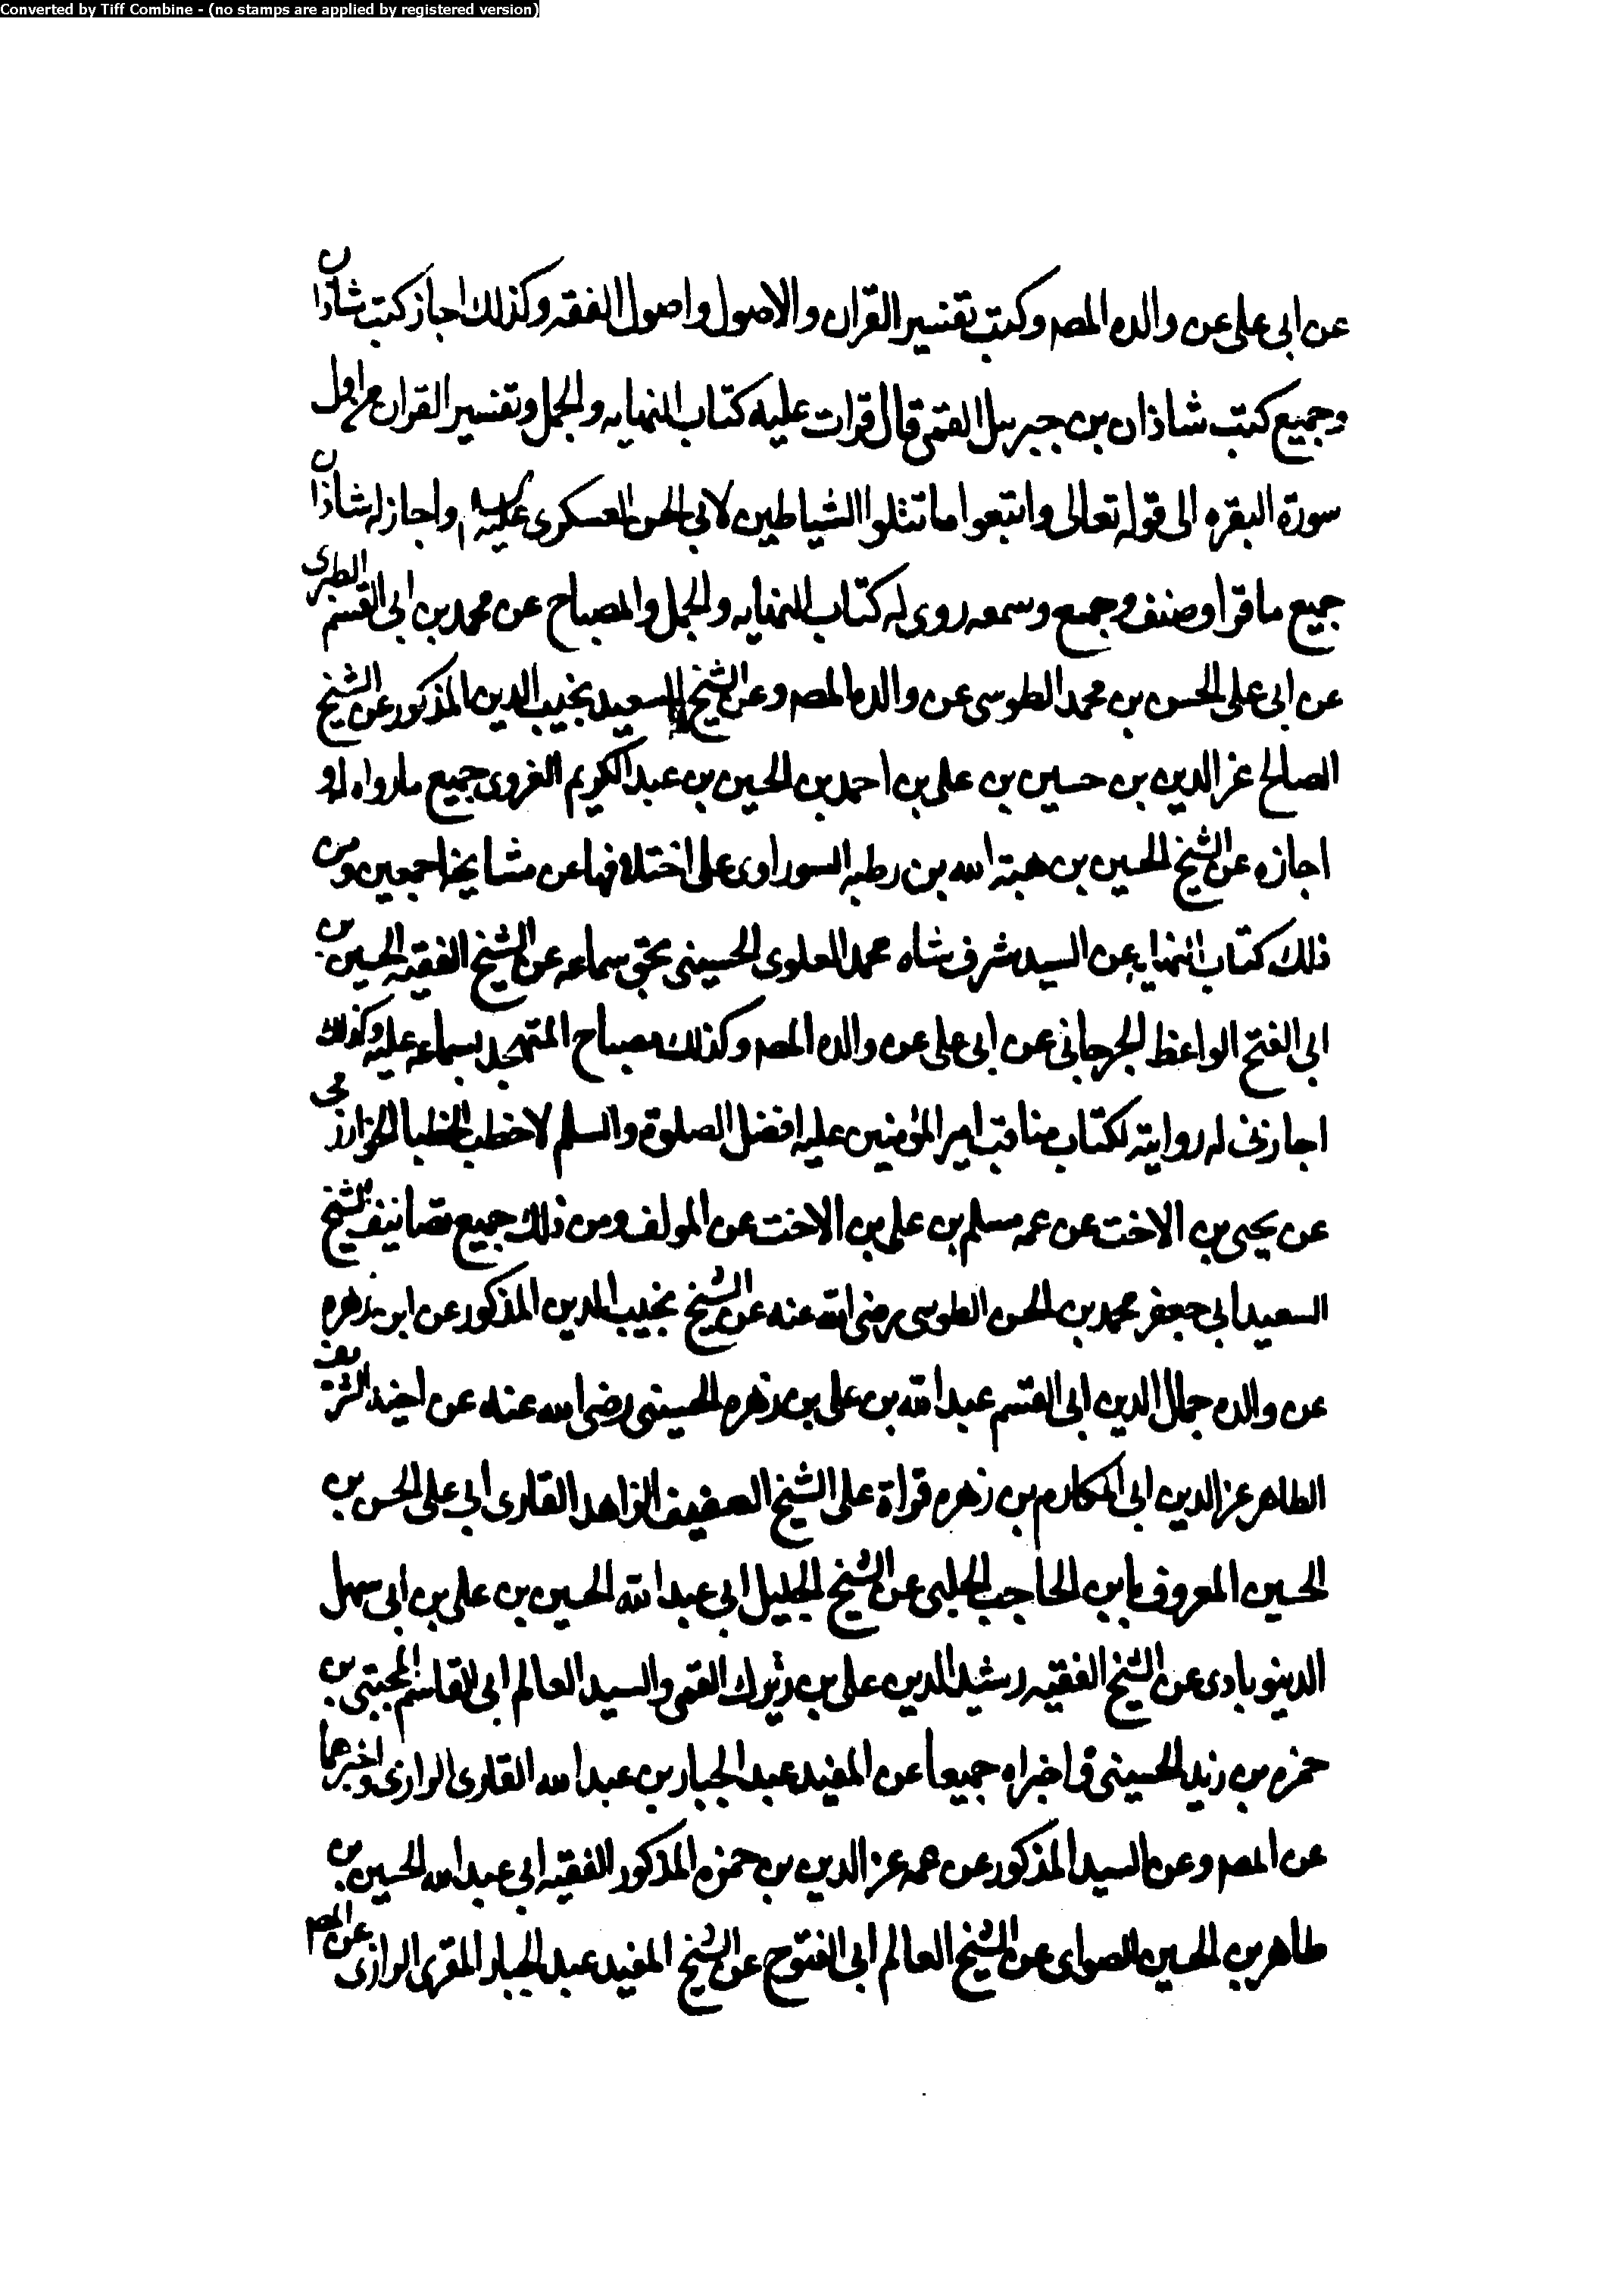 Converted by Tiff Combine - (no stamps are applied by registered version)
عن ابى على عن والده المصـ وكتب تفسير القران والاصول واصول الفقه وكذلك اجاز كتب شاذان
وجميع كتب شاذان بن جبريل القمى قال قرات عليه كتاب النهايه والجمل وتفسير القران من اول
سورة البقره الى قوله تعالى واتبعوا ما تتلوا الشياطين لابى الحسن العسكرى عليه السلم واجاز له شاذان
جميع ما قرا وصنف وجمع وسمعه روى له كتاب النهايه والجمل والمصباح عن محمد بن ابى القسم الطبرى
عن ابى على الحسن بن محمد الطوسى عن والده المصـ وعن الشيخ السعيد نجيب الدين المذكور عن الشيخ
الصالح عز الدين بن حسين بن على بن احمد بن الحسين بن عبد الكريم الغروى جميع ما رواه او
اجازه عن الشيخ الحسين بن هبة الله بن رطبه السوراوى على اختلافها عن مشايخه اجمعين ومن
ذلك كتاب النهايه عن السيد شرف شاه محمد العلوى الحسينى بحق سماعه عن الشيخ الفقيه الحسين بن
ابى الفتح الواعظ الجرجانى عن ابى على عن والده المصـ وكذلك مصباح المتهجد بسماعه عليه وكذلك
اجازنى له روايته لكتاب مناقب امير المؤمنين عليه افضل الصلوة والسلم لاخطب الخطبا الخوارزمى
عن يحيى بن الاخت عن عمه مسلم بن على بن الاخت عن المولف ومن ذلك جميع تصانيف الشيخ
السعيد ابى جعفر محمد بن الحسن الطوسى رضى الله عنه عن الشيخ نجيب الدين المذكور عن ابن زهره
عن والده جمال الدين ابى القسم عبد الله بن على بن زهره الحسينى رضى الله عنه عن اخيه الشريف
الطاهر عز الدين ابى المكارم بن زهره قراة على الشيخ العفيف الزاهد القارى ابى على الحسن بن
الحسين المعروف بابن الحاجب الحلبى عن الشيخ الجليل ابى عبد الله الحسين بن على بن ابى سهل
الدينوبادى عن الشيخ الفقيه رشيد الدين على بن زيرك القمى والسيد العالم ابى القاسم المجتبى بن
حمزه بن زيد الحسينى فاخبراه جميعا عن المفيد عبد الجبار بن عبد الله القارى الرازى واخبرهما
عن المصـ وعن السيد المذكور عن عمه عز الدين بن حمزه المذكور الفقيه ابى عبد الله الحسين بن
طاهر بن الحسين الصواى عن الشيخ العالم ابى الفتوح عن الشيخ المفيد عبد الجبار المقرى الرازى عن المصـ